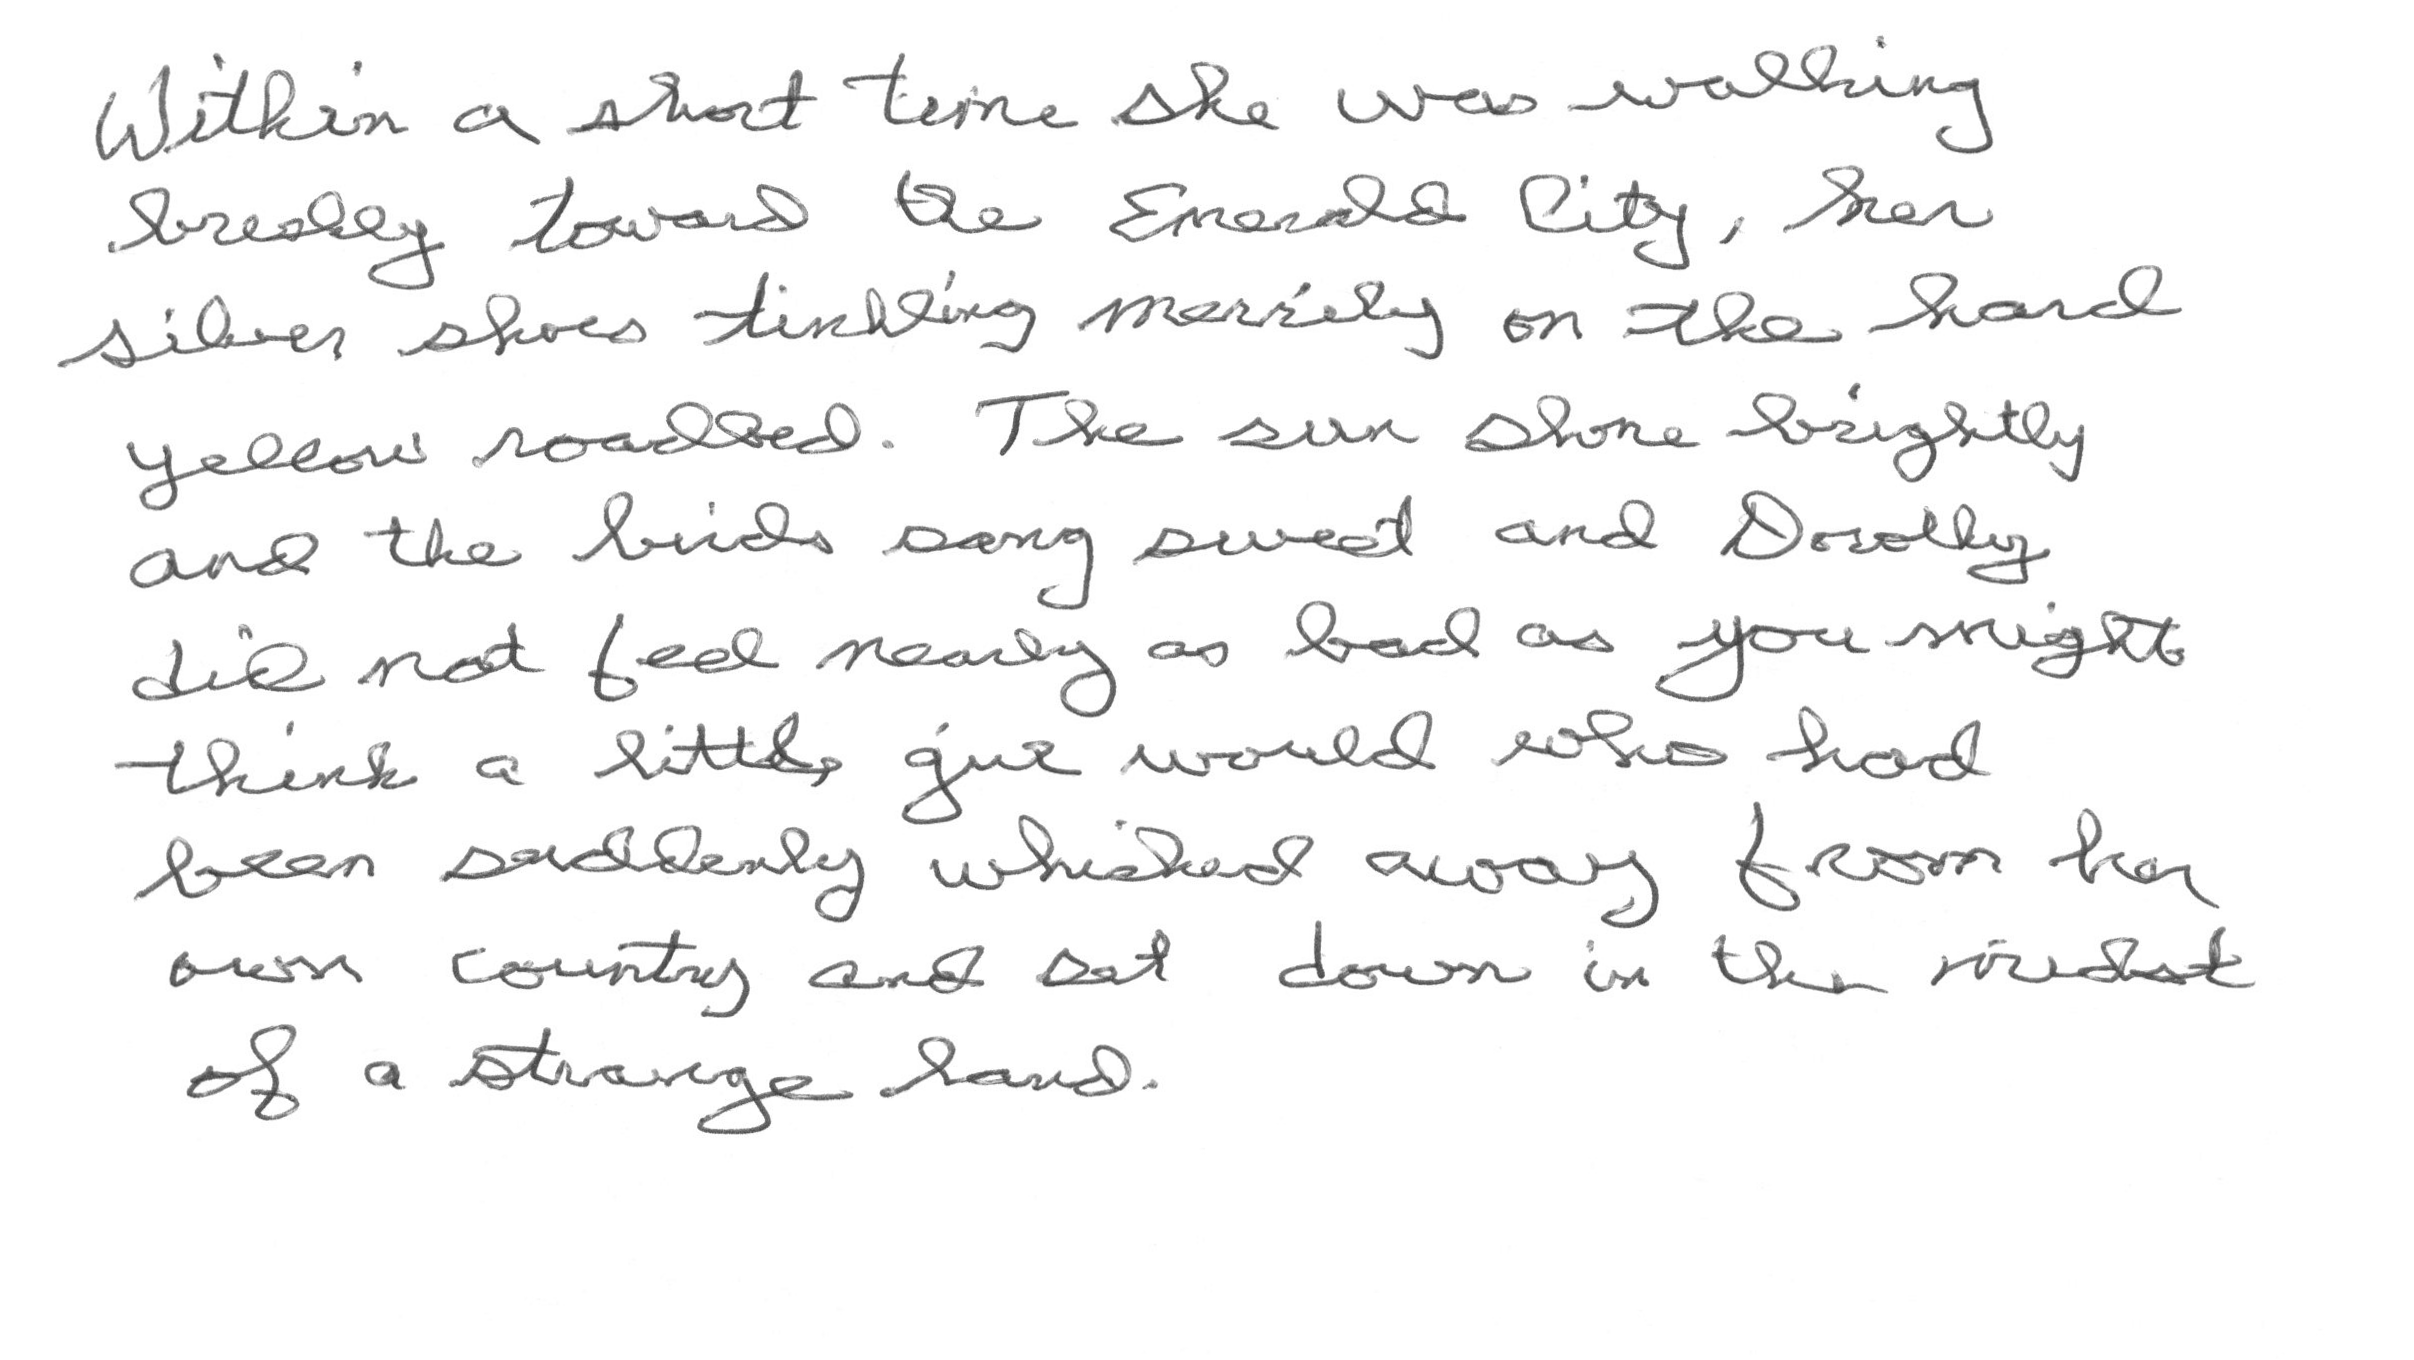 Within a short time she was walking
briskly toward the Emerald City, her
silver shoes tinkling merrily on the hard
yellow roadbed. The sun shone brightly
and the birds sang sweet and Dorothy
did not feel nearly as bad as you might
think a little girl would who had
been suddenly whisked away from her
own country and set down in the midst
of a strange land.